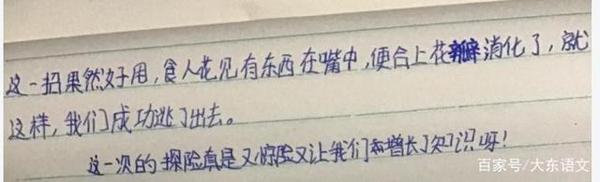 这一招果然好用,食人花见有东西在嘴中,便合上花瓣消化了,就
这样,我们成功逃了出去。
这一次的探险真是又惊险又让我们增长了知识呀!
百家号/大东语文